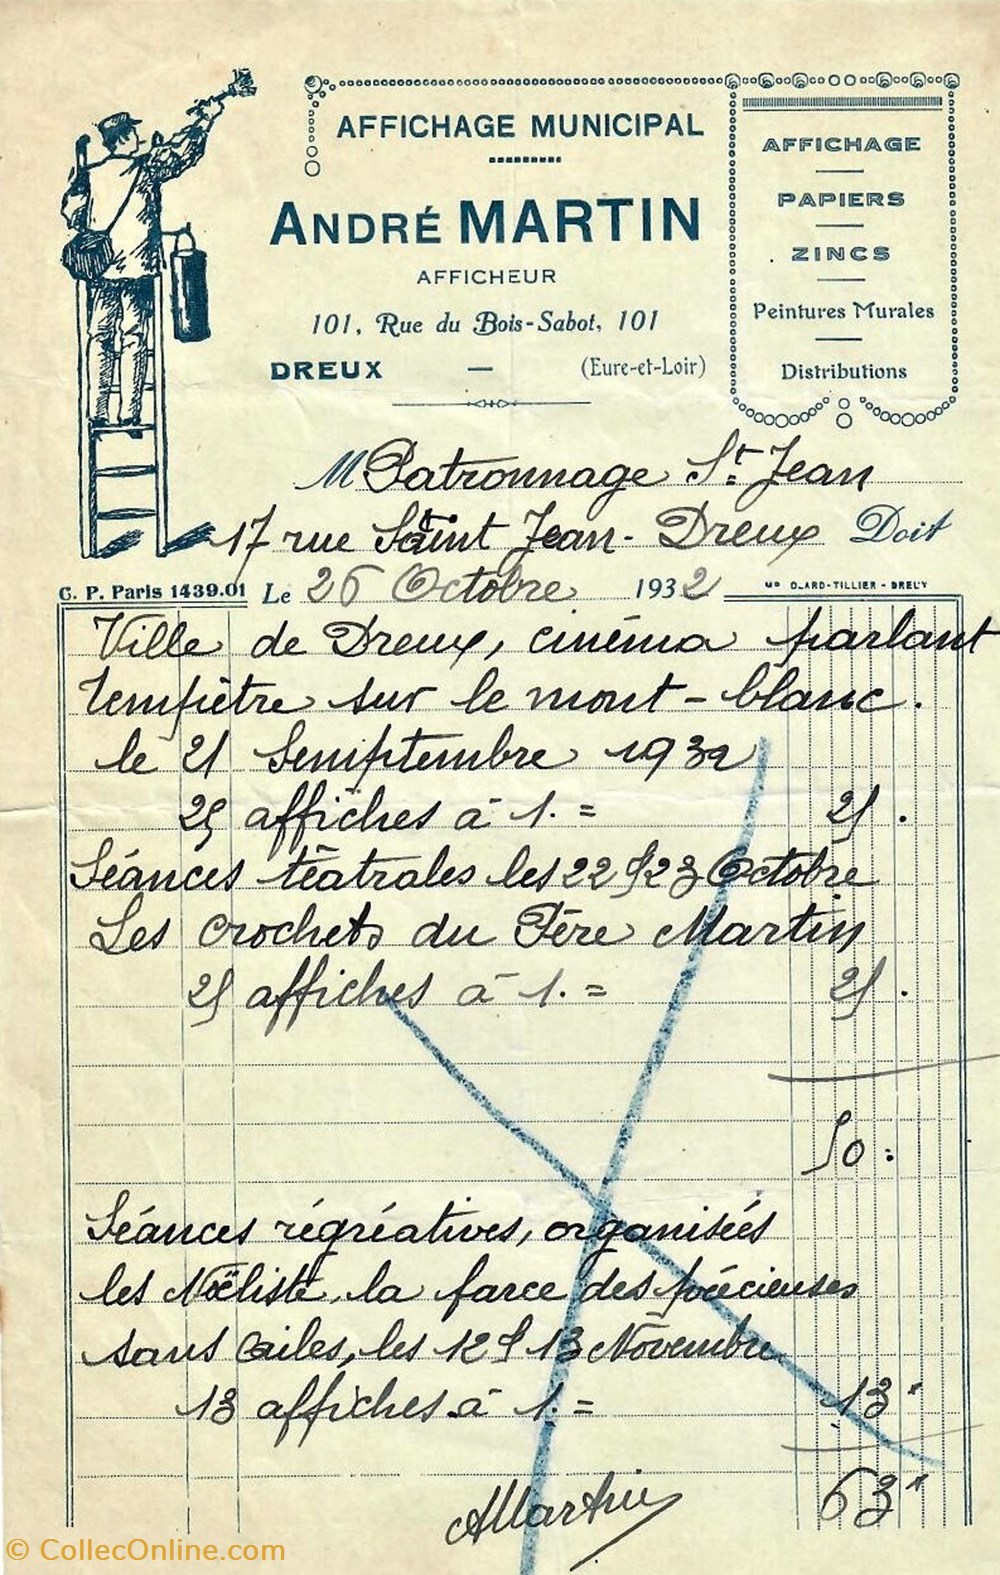 AFFICHAGE MUNICIPAL
ANDRÉ MARTIN
AFFICHEUR
101, Rue du Bois-Sabot, 101
DREUX — (Eure-et-Loir)
AFFICHAGE
PAPIERS
ZINCS
Peintures Murales
Distributions
M Patronnage St Jean
17 rue Saint Jean - Dreux Doit
C. P. Paris 1439.01 Le 26 Octobre 1932
OLARD-TILLIER - DREUX
Ville de Dreux, cinéma parlant
tempêtre sur le mont-blanc.
le 21 Semptembre 1932
25 affiches à 1. = 25.
Séances téatrales les 22 & 23 Octobre
Les crochets du Père Martin
25 affiches à 1. = 25.
50 :
Séances régréatives, organisées
les Noëliste, la farce des précieuses
sans Cailes, les 12 & 13 Novembre
13 affiches à 1. = 13"
63"
AMartin
© CollecOnline.com